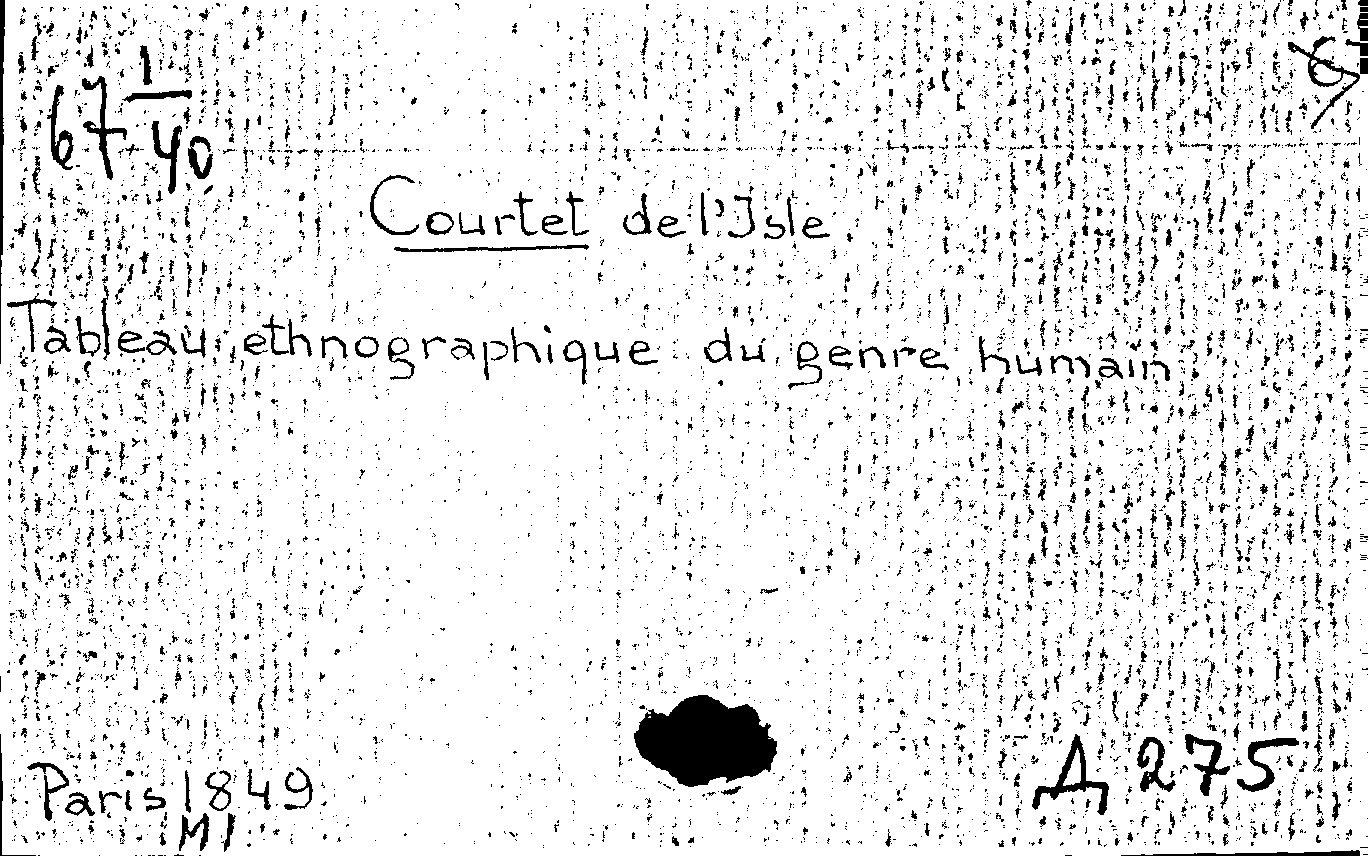 67 1/40
Courtet de l'Isle
Tableau ethnographique du genre humain
Paris 1849
Д 275